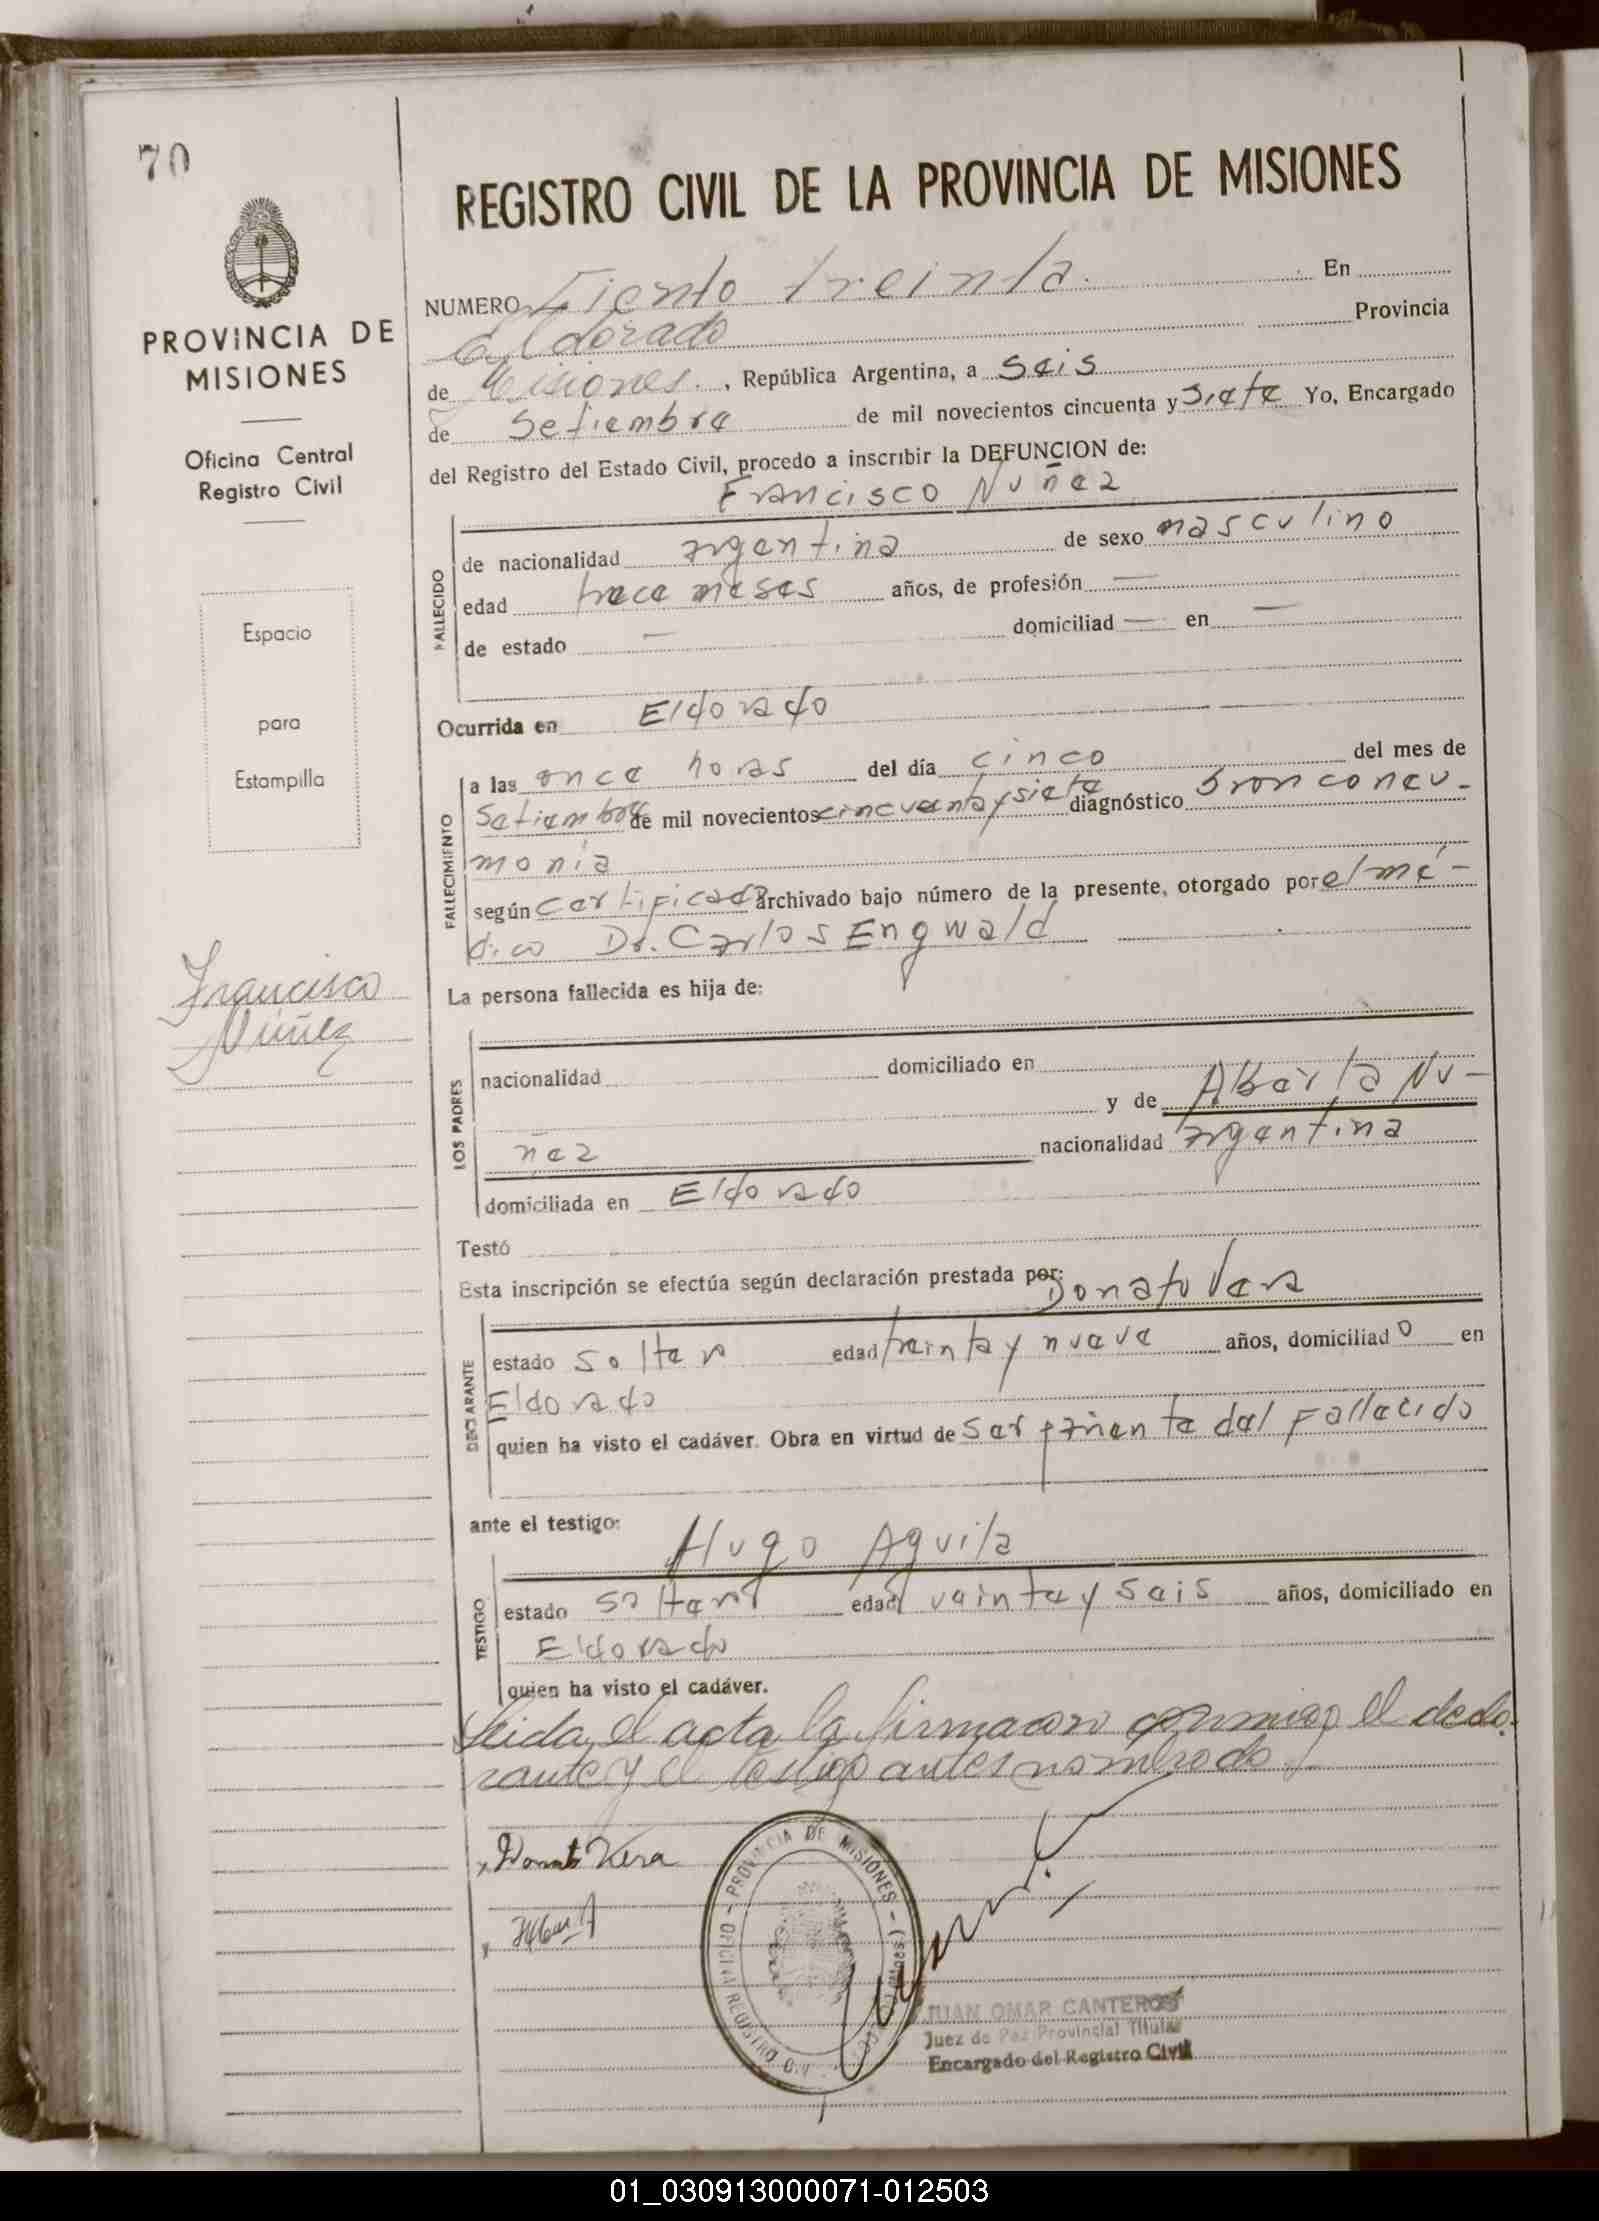 70
REGISTRO CIVIL DE LA PROVINCIA DE MISIONES
PROVINCIA DE
MISIONES
Oficina Central
Registro Civil
Espacio
para
Estampilla
Francisco
Núñez
NUMERO Ciento treinta. En
Eldorado Provincia
de Misiones. , República Argentina, a Seis
de Setiembre de mil novecientos cincuenta y Siete Yo, Encargado
del Registro del Estado Civil, procedo a inscribir la DEFUNCION de:
Francisco Nuñez
FALLECIDO
de nacionalidad argentina de sexo masculino
edad trece meses años, de profesión —
de estado — domiciliad — en —
Ocurrida en Eldorado
FALLECIMIENTO
a las once horas del día cinco del mes de
Setiembre de mil novecientos cincuenta y siete diagnóstico bronconeu-
monia
según certificado archivado bajo número de la presente, otorgado por el mé-
dico Dr. Carlos Engwald
La persona fallecida es hija de:
LOS PADRES
nacionalidad domiciliado en
y de Alberta Nu-
ñez nacionalidad argentina
domiciliada en Eldorado
Testó
Esta inscripción se efectúa según declaración prestada por: Donato Vera
DECLARANTE
estado soltero edad treinta y nueve años, domiciliad o en
Eldorado
quien ha visto el cadáver. Obra en virtud de ser pariente del Fallecido
ante el testigo:
Hugo Aguila
TESTIGO
estado soltero edad veinte y seis años, domiciliado en
Eldorado
quien ha visto el cadáver.
Leida el acta la firmaron conmigo el decla-
rante y el testigo antes nombrado
Donato Vera
PROVINCIA DE MISIONES
OFICINA REGISTRO CIVIL
JUAN OMAR CANTEROS
Juez de Paz Provincial Titular
Encargado del Registro Civil
01_030913000071-012503